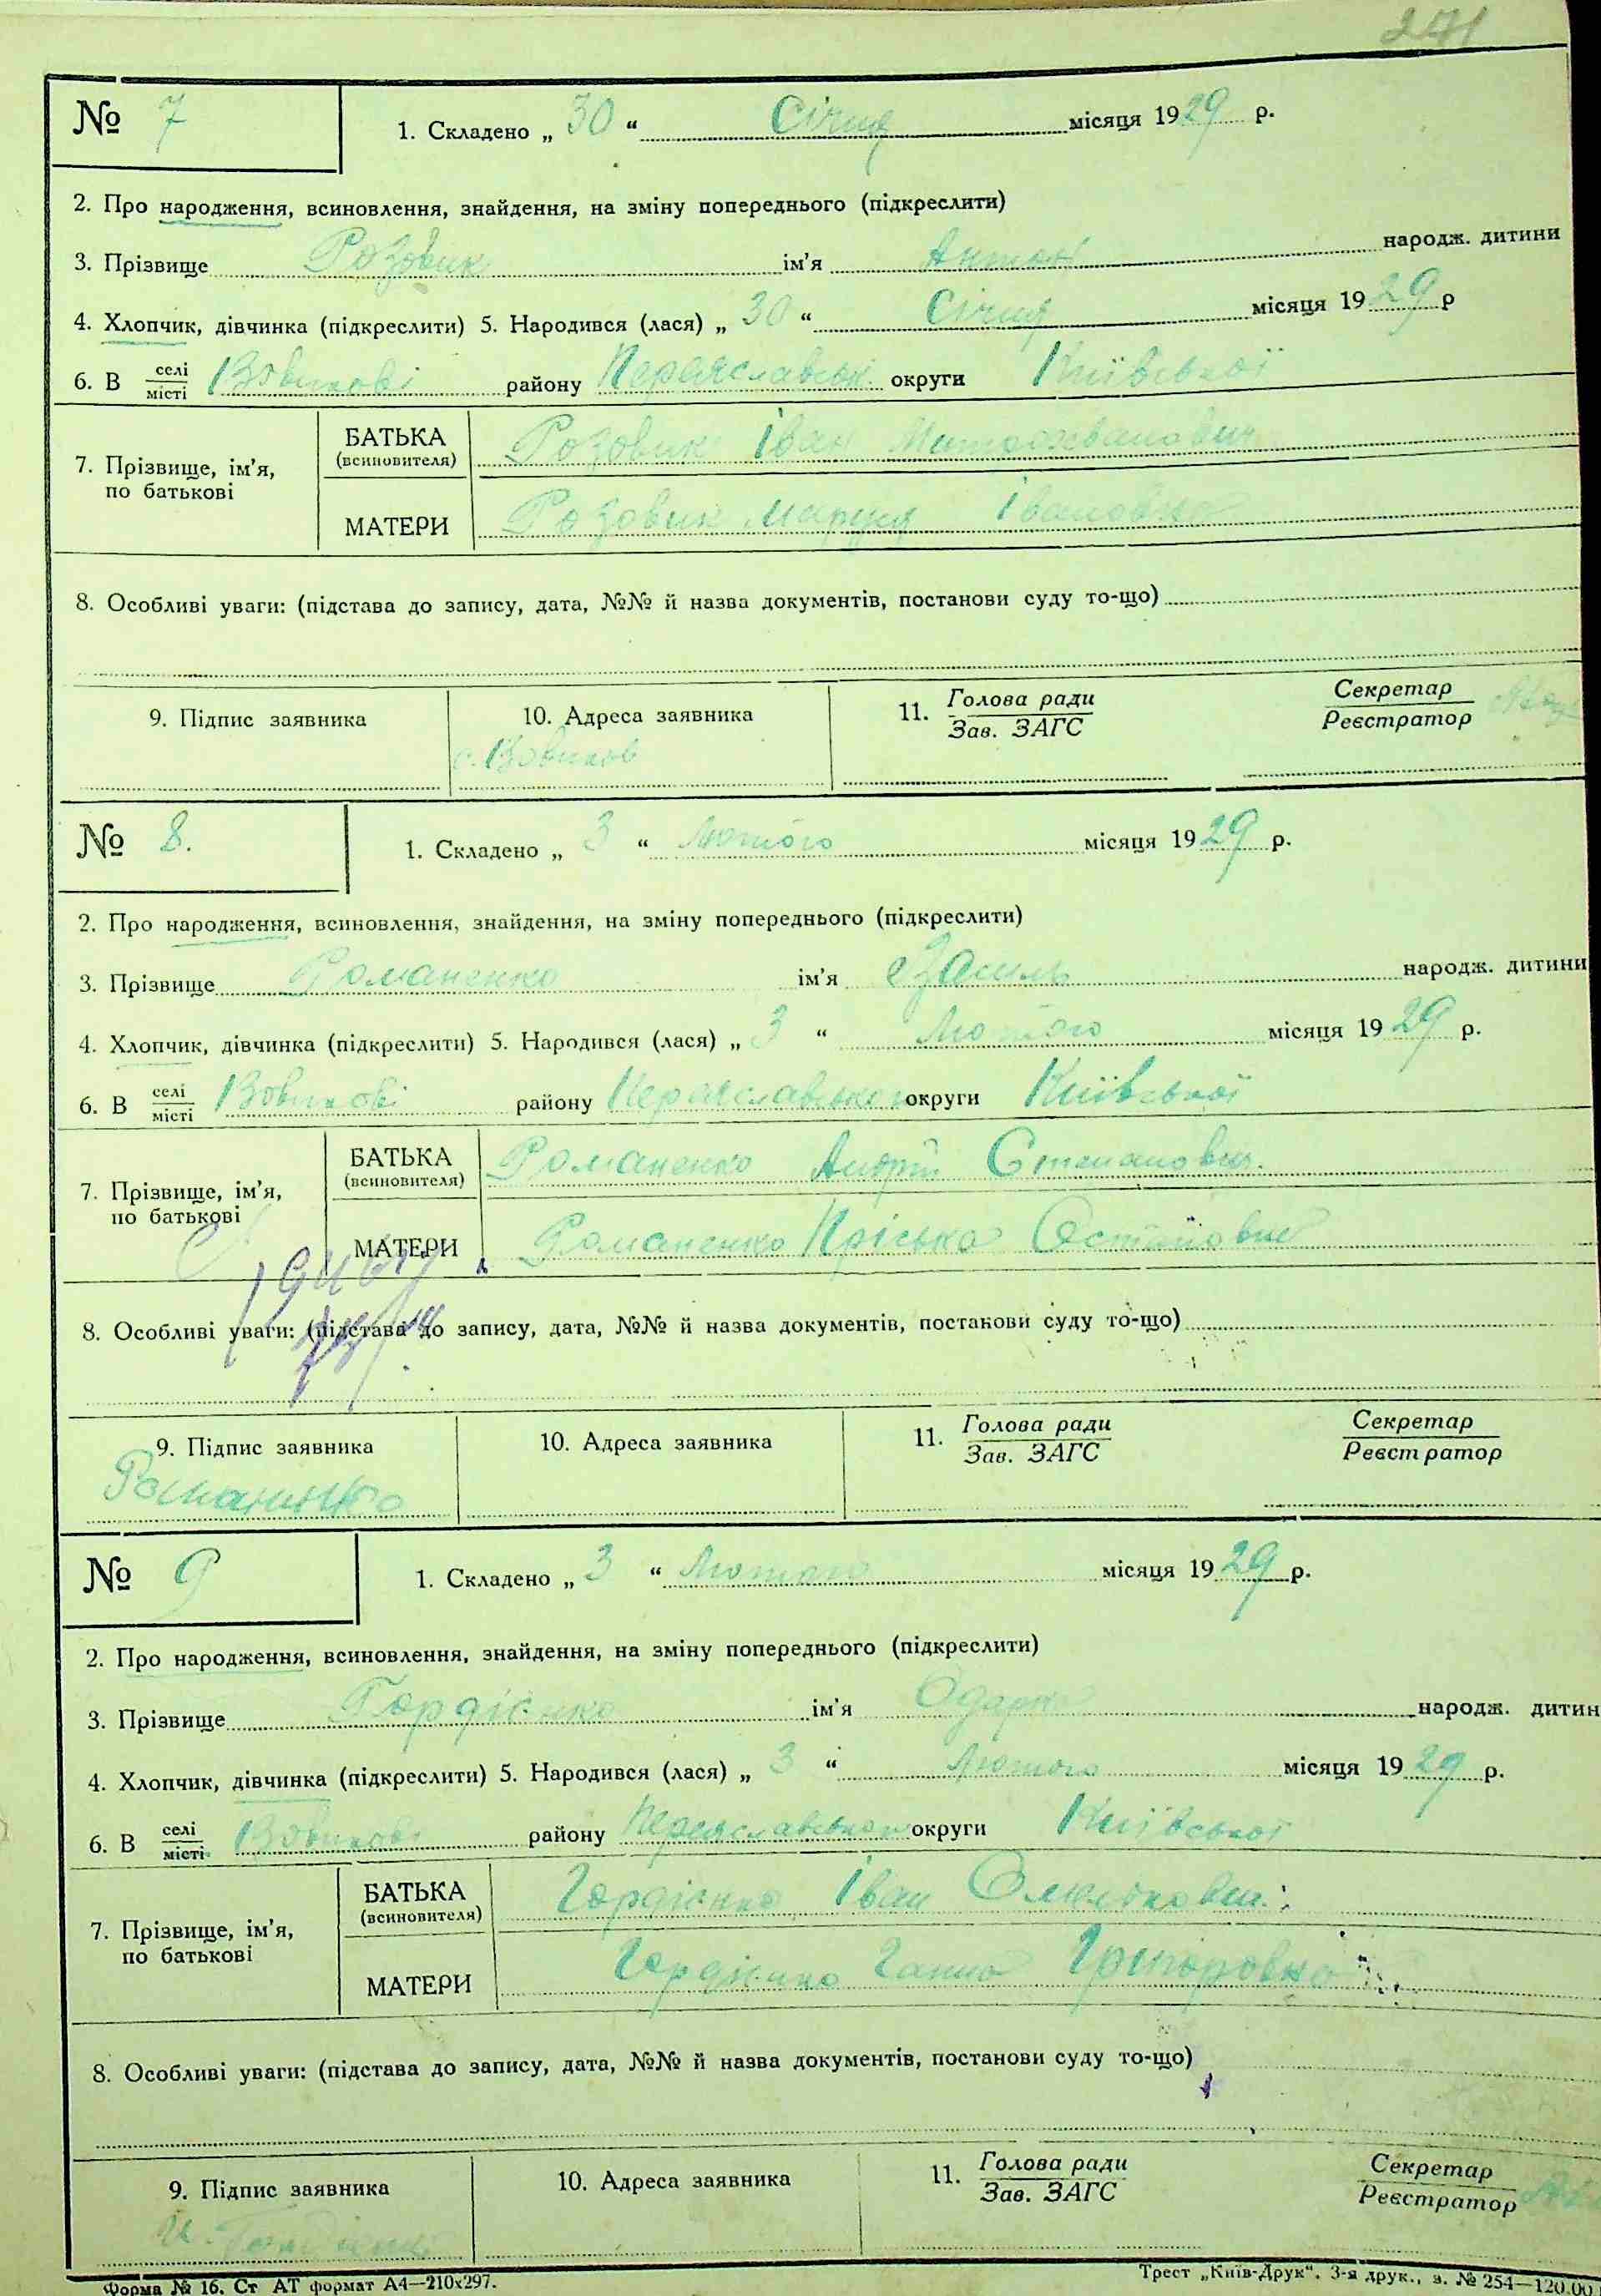 271
№ 7
1. Складено „ 30 “ Січня місяця 1929 р.
2. Про народження, всиновлення, знайдення, на зміну попереднього (підкреслити)
3. Прізвище Розовик ім’я Антон народж. дитини
4. Хлопчик, дівчинка (підкреслити) 5. Народився (лася) „ 30 “ Січня місяця 1929 р
6. В селі/місті Вовчкові району Переяславськ. округи Київської
7. Прізвище, ім’я, по батькові
БАТЬКА (всиновителя) Розовик Іван
МАТЕРИ Розовик Маруся Івановна
8. Особливі уваги: (підстава до запису, дата, №№ й назва документів, постанови суду то-що)
9. Підпис заявника 10. Адреса заявника 11. Голова ради/Зав. ЗАГС Секретар/Реєстратор
с. Вовчков
№ 8.
1. Складено „ 3 “ Лютого місяця 1929 р.
2. Про народження, всиновлення, знайдення, на зміну попереднього (підкреслити)
3. Прізвище Романенко ім’я Василь народж. дитини
4. Хлопчик, дівчинка (підкреслити) 5. Народився (лася) „ 3 “ Лютого місяця 1929 р.
6. В селі/місті Вовчкові району Переяславського округи Київської
7. Прізвище, ім’я, по батькові
БАТЬКА (всиновителя) Романенко Андрій Степанович.
МАТЕРИ Романенко Пріська Остаповна
8. Особливі уваги: (підстава до запису, дата, №№ й назва документів, постанови суду то-що)
9. Підпис заявника 10. Адреса заявника 11. Голова ради/Зав. ЗАГС Секретар/Реєстратор
Романенко
№ 9
1. Складено „ 3 “ Лютого місяця 1929 р.
2. Про народження, всиновлення, знайдення, на зміну попереднього (підкреслити)
3. Прізвище Гордієнко ім’я Одарка народж. дитин
4. Хлопчик, дівчинка (підкреслити) 5. Народився (лася) „ 3 “ Лютого місяця 1929 р.
6. В селі/місті Вовчкові району Переяславського округи Київської
7. Прізвище, ім’я, по батькові
БАТЬКА (всиновителя) Гордієнко Іван
МАТЕРИ Гордієнко Ганна Григоровна
8. Особливі уваги: (підстава до запису, дата, №№ й назва документів, постанови суду то-що)
9. Підпис заявника 10. Адреса заявника 11. Голова ради/Зав. ЗАГС Секретар/Реєстратор
Форма № 16. Ст АТ формат А4—210х297.
Трест „Київ-Друк“. 3-я друк., з. № 254—120.00